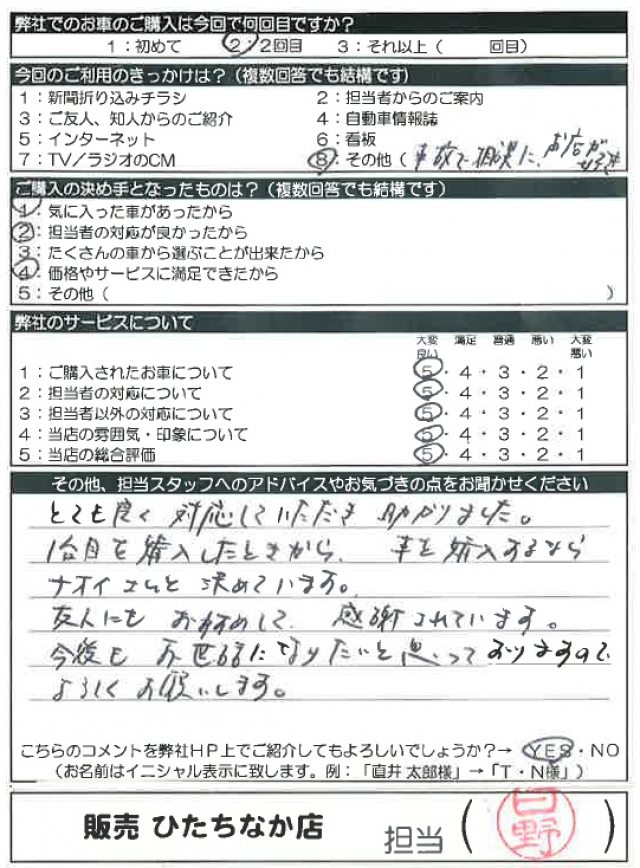 弊社でのお車のご購入は今回で何回目ですか？
1：初めて 2：2回目 3：それ以上（ 回目）
今回のご利用のきっかけは？（複数回答でも結構です）
1：新聞折り込みチラシ 2：担当者からのご案内
3：ご友人、知人からのご紹介 4：自動車情報誌
5：インターネット 6：看板
7：TV／ラジオのCM 8：その他（ 事故で相談に、お店が
ご購入の決め手となったものは？（複数回答でも結構です）
1：気に入った車があったから
2：担当者の対応が良かったから
3：たくさんの車から選ぶことが出来たから
4：価格やサービスに満足できたから
5：その他（ ）
弊社のサービスについて
大変良い 満足 普通 悪い 大変悪い
1：ご購入されたお車について 5・4・3・2・1
2：担当者の対応について 5・4・3・2・1
3：担当者以外の対応について 5・4・3・2・1
4：当店の雰囲気・印象について 5・4・3・2・1
5：当店の総合評価 5・4・3・2・1
その他、担当スタッフへのアドバイスやお気づきの点をお聞かせください
とても良く対応していただき助かりました。
1台目を購入したときから、車を購入するなら
ナオイさんと決めています。
友人にもおすすめして、感謝されています。
今後もお世話になりたいと思っておりますので
よろしくお願いします。
こちらのコメントを弊社HP上でご紹介してもよろしいでしょうか？→ YES・NO
（お名前はイニシャル表示に致します。例：「直井 太郎様」→「T・N様」）
販売 ひたちなか店 担当（日野）